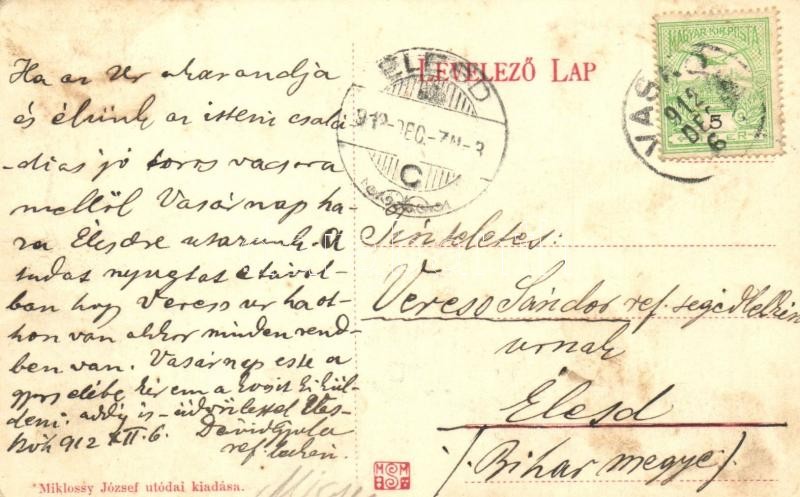 Ha az Ur akarandja
és élünk az isteni csalá
-dias jó toros vacsora
mellől Vasárnap ha
za Élesdre utazunk. A
tudat nyugtat e távol-
ban hogy Veress ur ha ot-
hon van akkor minden rend-
ben van. Vasárnap este a
gyors elébe kérem a kocsit kikül-
deni: addig is üdvözlettel Vas-
kóh 912 XII. 6. Dávid Gyula
ref. lelkész.
LEVELEZŐ LAP
ÉLESD
912 DEC. 7
C
MAGYAR KIR. POSTA
5
VASKO
912
DEC
6
Tiszteletes:
Veress Sándor ref. segédlelkész
urnak
Élesd
(Bihar megye)
Miklossy József utódai kiadása.
M M